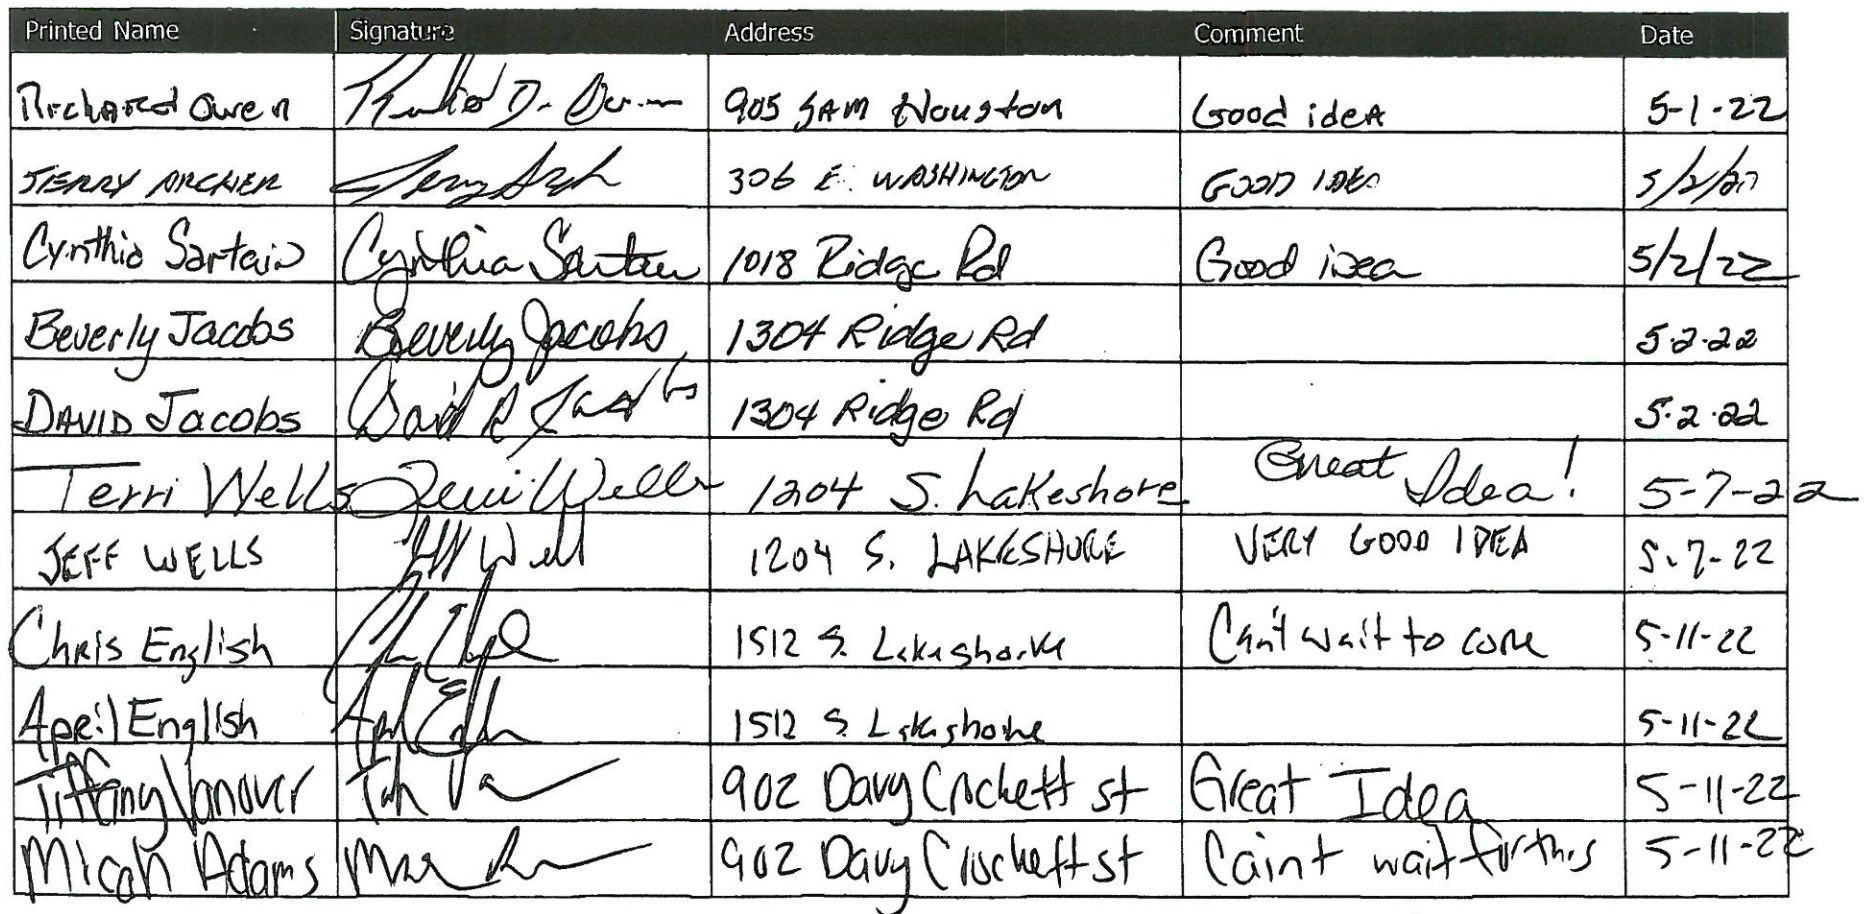 Printed Name Signature Address Comment Date
Richard Owen Richard D. Owen 905 SAM Houston Good ideA 5-1-22
JERRY ARCHER Jerry Arch 306 E. WASHINGTON GOOD IDEA 5/2/22
Cynthia Sartain Cynthia Sartain 1018 Ridge Rd Good idea 5/2/22
Beverly Jacobs Beverly Jacobs 1304 Ridge Rd 5.2.22
DAVID Jacobs David R Jacobs 1304 Ridge Rd 5.2.22
Terri Wells Terri Wells 1204 S. Lakeshore Great Idea! 5-7-22
JEFF WELLS Jeff Well 1204 S. LAKESHORE VERY GOOD IDEA 5-7-22
Chris English 1512 S. Lakeshore Can't wait to come 5-11-22
April English 1512 S. Lakeshore 5-11-22
Tiffany Vanover 902 Davy Crockett st Great Idea 5-11-22
Micah Adams 902 Davy Crockett st Caint wait for this 5-11-22